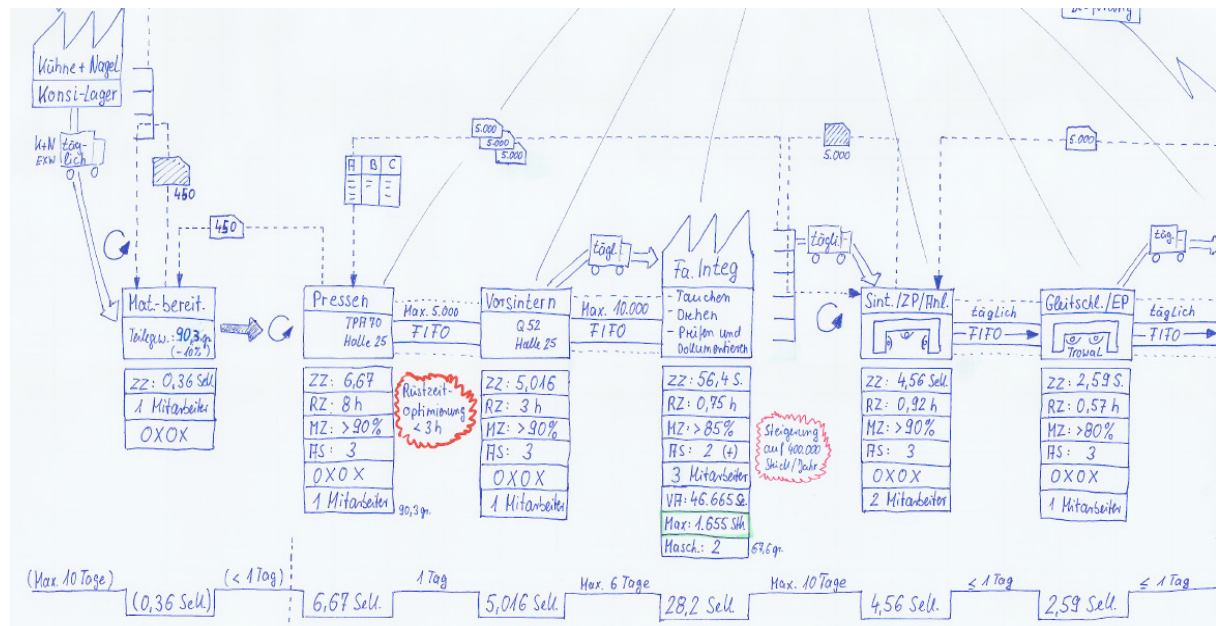 Kühne + Nagel
Konsi-Lager
K+N
EXW
täg-
lich
450
450
5.000
5.000
5.000
5.000
5.000
A B C
tägl.
tägli-
täg-
Mat-bereit.
Teilegew.: 90,3 gr.
(-10%)
ZZ: 0,36 Sek.
1 Mitarbeiter
OXOX
Pressen
TPA 70
Halle 25
ZZ: 6,67
RZ: 8 h
MZ: >90%
AS: 3
OXOX
1 Mitarbeiter
90,3 gr.
Rüstzeit-
optimierung
< 3 h
Max. 5.000
FIFO
Vorsintern
Q 52
Halle 25
ZZ: 5,016
RZ: 3 h
MZ: >90%
AS: 3
OXOX
1 Mitarbeiter
Max. 10.000
FIFO
Fa. Integ
- Tauchen
- Drehen
- Prüfen und
Dokumentieren
ZZ: 56,4 S.
RZ: 0,75 h
MZ: >85%
AS: 2 (+)
3 Mitarbeiter
VA: 46.665 St.
Max: 1.655 Stk
Masch.: 2
67,6 gr.
Steigerung
auf 400.000
Stück/Jahr
Sint./ZP/Anl.
ZZ: 4,56 Sek.
RZ: 0,92 h
MZ: >90%
AS: 3
OXOX
2 Mitarbeiter
täglich
FIFO
Gleitschl./EP
Trowal
ZZ: 2,59 S.
RZ: 0,57 h
MZ: >80%
AS: 3
OXOX
1 Mitarbeiter
täglich
FIFO
(Max. 10 Tage)
(0,36 Sek.)
(< 1 Tag)
6,67 Sek.
1 Tag
5,016 Sek.
Max. 6 Tage
28,2 Sek.
Max. 10 Tage
4,56 Sek.
≤ 1 Tag
2,59 Sek.
≤ 1 Tag